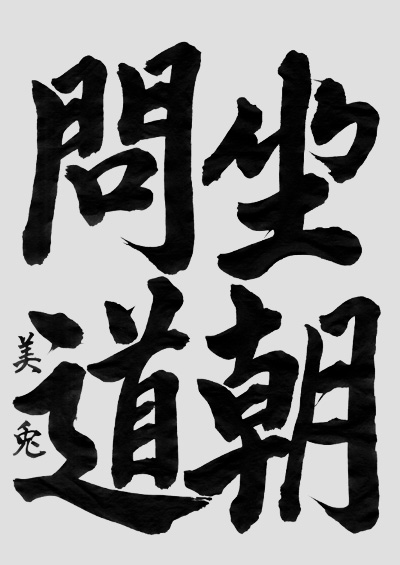 坐朝
問道
美兎